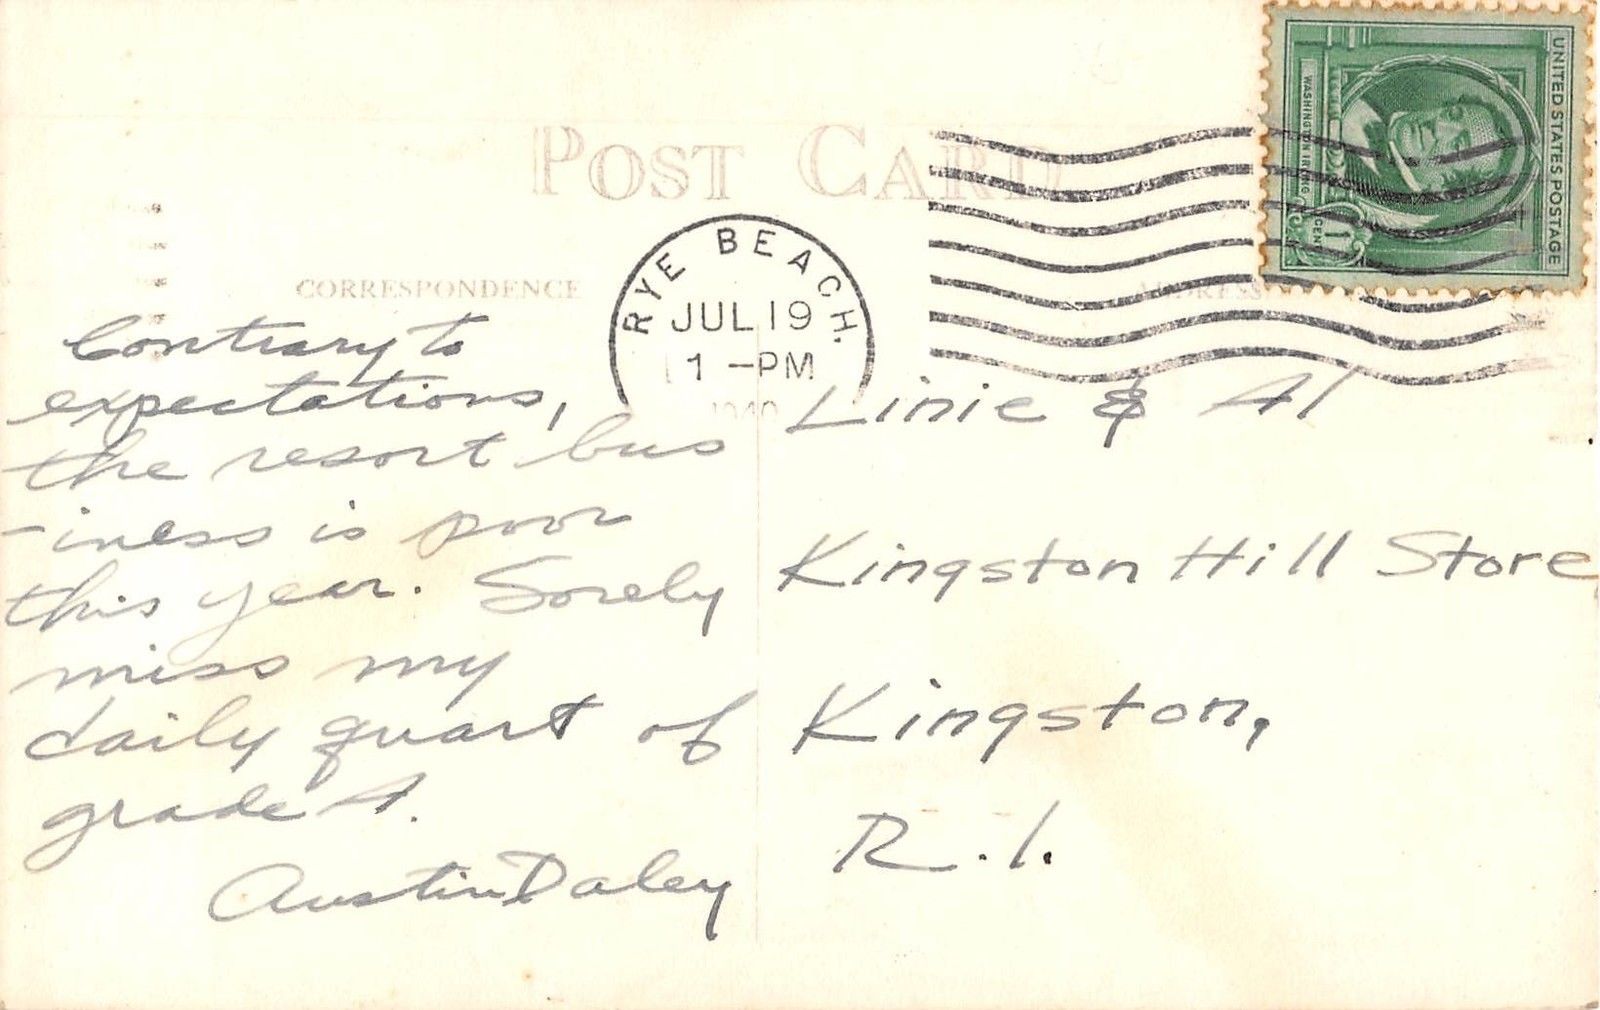 UNITED STATES POSTAGE
WASHINGTON IRVING
1 CENT
POST CARD
RYE BEACH.
JUL 19
1 -PM
1940
CORRESPONDENCE
ADDRESS
Contrary to
expectations,
the resort bus
-iness is poor
this year. Sorely
miss my
daily quart of
grade A.
Austin Daley
Linie & Al
Kingston Hill Store
Kingston,
R.I.